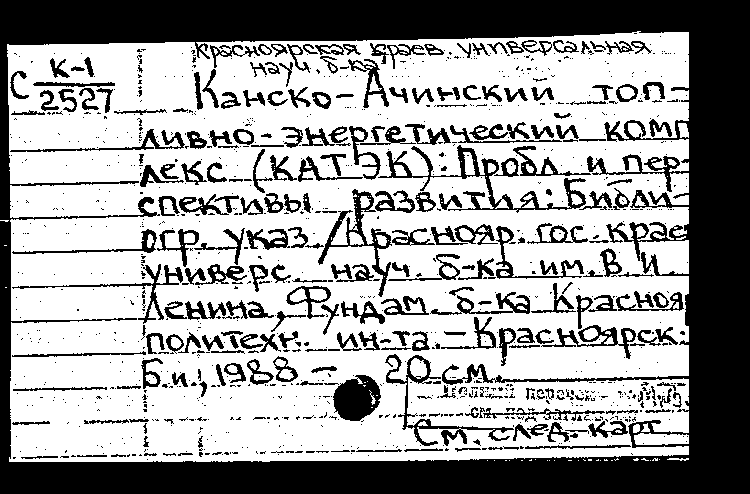 Красноярская краев. универсальная
науч. б-ка
С К-1
2527
Канско-Ачинский топ-
ливно-энергетический комп
лекс (КАТЭК): Пробл. и пер-
спективы развития: Библи-
огр. указ. / Краснояр. гос. крае
универс. науч. б-ка им. В. И.
Ленина, Фундам. б-ка Красноя
политехн. ин-та. - Красноярск:
Б.и., 1988 - 20 см.
Полный перечень
см. под заглавием
См. след. карт